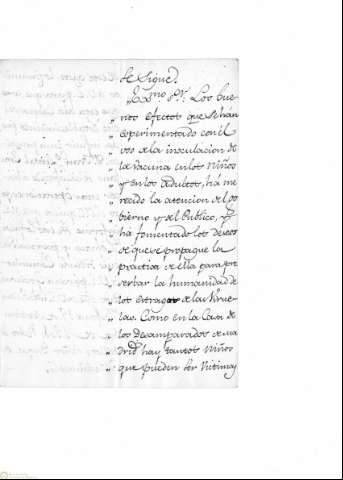 se sigue.
„ Exmo. Sr. Los bue-
„ nos efectos que se hán
„ esperimentado con él
„ uso de la inoculacion de
„ la Vacuna en los Niños
„ y en los adultos, há me
„ recido la atencion del go
„ bierno y del Publico, y
„ há fomentado los deseos
„ de que se propague la
„ practica de ella para pre
„ serbar la humanidad de
„ los estragos de las Virue
„ las. Como en la Casa de
„ los Desamparados de Ma
„ drid hay tantos Niños
„ que pueden ser Victimas